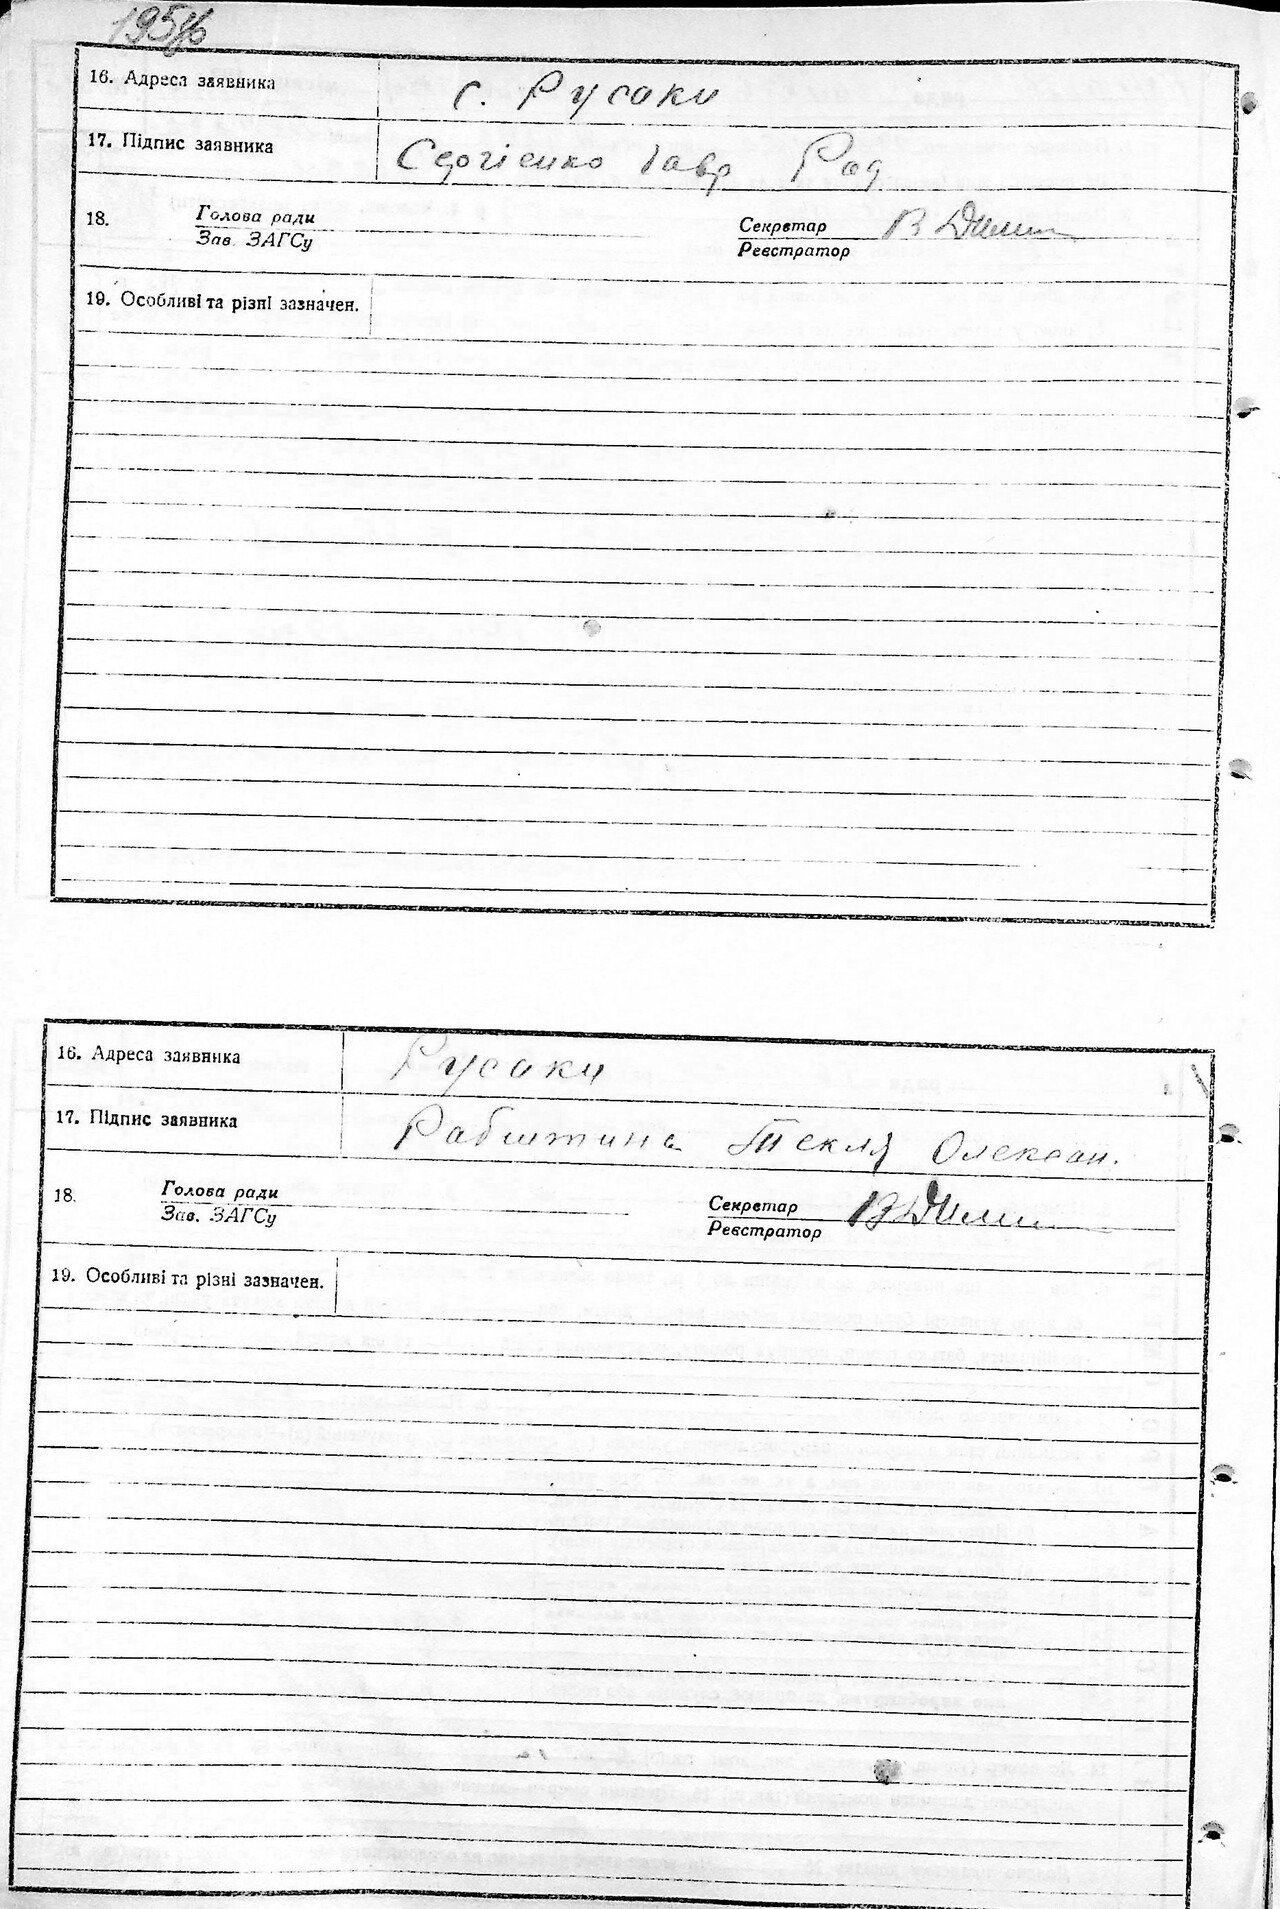 195зв
16. Адреса заявника с. Русаки
17. Підпис заявника Сергієнко Гавр Рад
18. Голова ради Секретар
Зав. ЗАГСу Реєстратор
19. Особливі та різні зазначен.
16. Адреса заявника Русаки
17. Підпис заявника Рабштина Текля Олексан.
18. Голова ради Секретар
Зав. ЗАГСу Реєстратор
19. Особливі та різні зазначен.